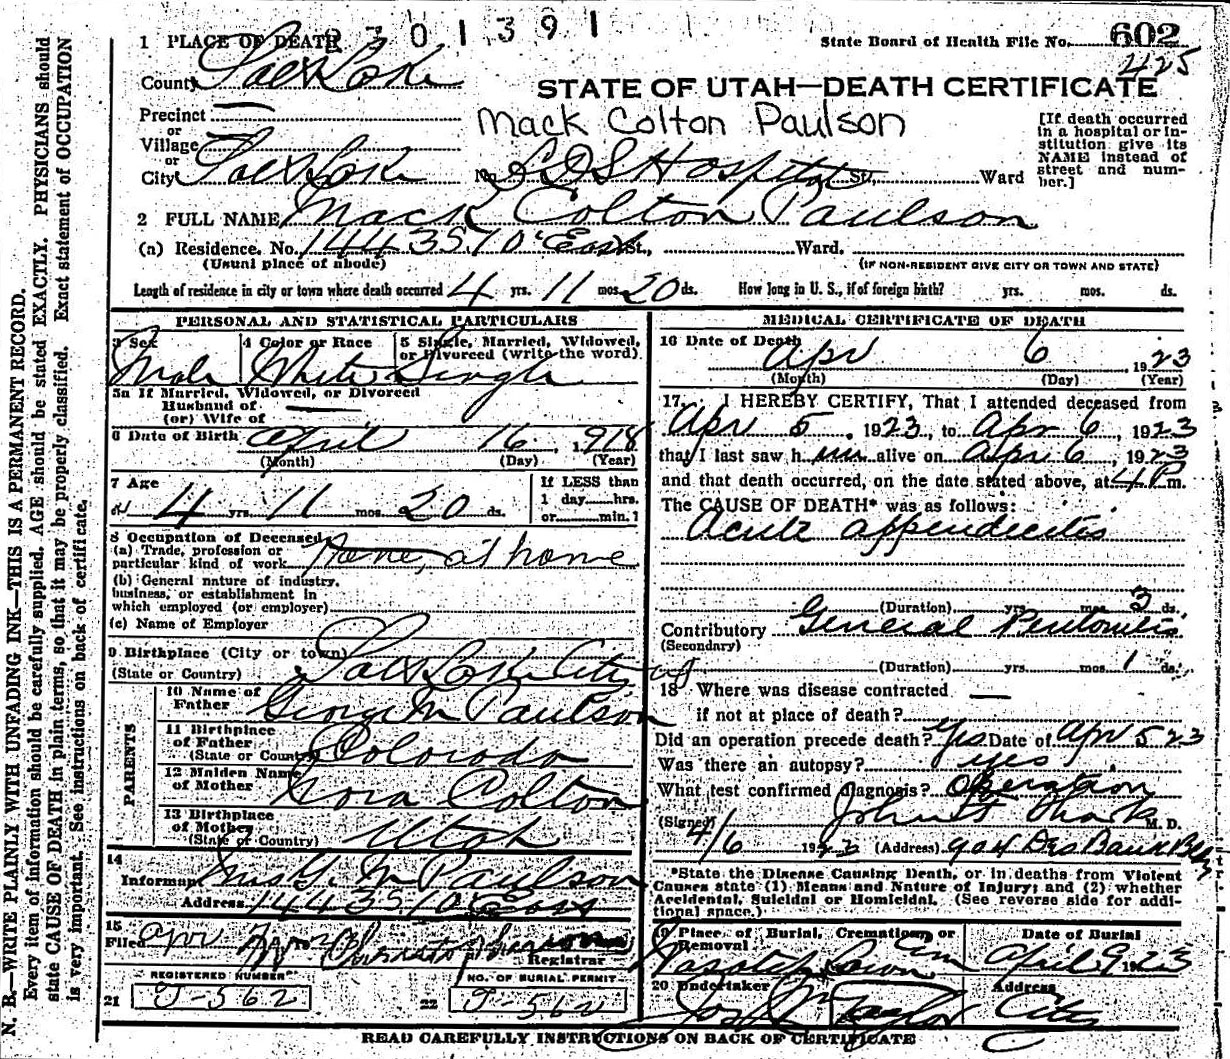 2 3 0 1 3 9 1
State Board of Health File No. 602
425
1 PLACE OF DEATH
County Salt Lake
STATE OF UTAH—DEATH CERTIFICATE
Precinct —
or
Village
or
City Salt Lake No. LDS Hospital St., Ward
Mack Colton Paulson
[If death occurred
in a hospital or in-
stitution give its
NAME instead of
street and num-
ber.]
2 FULL NAME Mack Colton Paulson
(a) Residence. No. 1443 S. 10 East St., Ward.
(Usual place of abode) (IF NON-RESIDENT GIVE CITY OR TOWN AND STATE)
Length of residence in city or town where death occurred 4 yrs. 11 mos. 20 ds. How long in U. S., if of foreign birth? yrs. mos. ds.
PERSONAL AND STATISTICAL PARTICULARS
3 Sex
Male
4 Color or Race
White
5 Single, Married, Widowed,
or Divorced (write the word)
Single
5a If Married, Widowed, or Divorced
Husband of —
(or) Wife of
6 Date of Birth April 16, 1918
(Month) (Day) (Year)
7 Age
4 yrs. 11 mos. 20 ds.
If LESS than
1 day......hrs.
or......min.?
8 Occupation of Deceased
(a) Trade, profession or
particular kind of work None, at home
(b) General nature of industry,
business, or establishment in
which employed (or employer)
(c) Name of Employer
9 Birthplace (City or town) Salt Lake City
(State or Country)
PARENTS
10 Name of
Father George M Paulson
11 Birthplace
of Father
(State or Country) Colorado
12 Maiden Name
of Mother Cora Colton
13 Birthplace
of Mother
(State or Country) Utah
14
Informant Mrs G. M Paulson
Address 1443 S 10 East
15
Filed Apr
Registrar
REGISTERED NUMBER
21 J-562
NO. OF BURIAL PERMIT
22 J-562
MEDICAL CERTIFICATE OF DEATH
16 Date of Death
Apr 6 1923
(Month) (Day) (Year)
17. I HEREBY CERTIFY, That I attended deceased from
Apr 5, 1923, to Apr 6, 1923
that I last saw him alive on Apr 6, 1923
and that death occurred, on the date stated above, at 4 P m.
The CAUSE OF DEATH* was as follows:
Acute appendicitis
(Duration) yrs. mos. 3 ds.
Contributory General Peritonitis
(Secondary)
(Duration) yrs. mos. 1 ds.
18 Where was disease contracted —
if not at place of death?
Did an operation precede death? Yes Date of Apr 5 23
Was there an autopsy? yes
What test confirmed diagnosis? Operation
(Signed) John M.D.
4/6 1923 (Address) 904
*State the Disease Causing Death, or in deaths from Violent
Causes state (1) Means and Nature of Injury; and (2) whether
Accidental, Suicidal or Homicidal. (See reverse side for addi-
tional space.)
19 Place of Burial, Cremation, or
Removal
Wasatch Lawn Cem
Date of Burial
April 9 1923
20 Undertaker
Jos Taylor
Address
City
READ CAREFULLY INSTRUCTIONS ON BACK OF CERTIFICATE
N. B.—WRITE PLAINLY WITH UNFADING INK—THIS IS A PERMANENT RECORD.
Every item of information should be carefully supplied. AGE should be stated EXACTLY. PHYSICIANS should
state CAUSE OF DEATH in plain terms, so that it may be properly classified. Exact statement of OCCUPATION
is very important. See instructions on back of certificate.